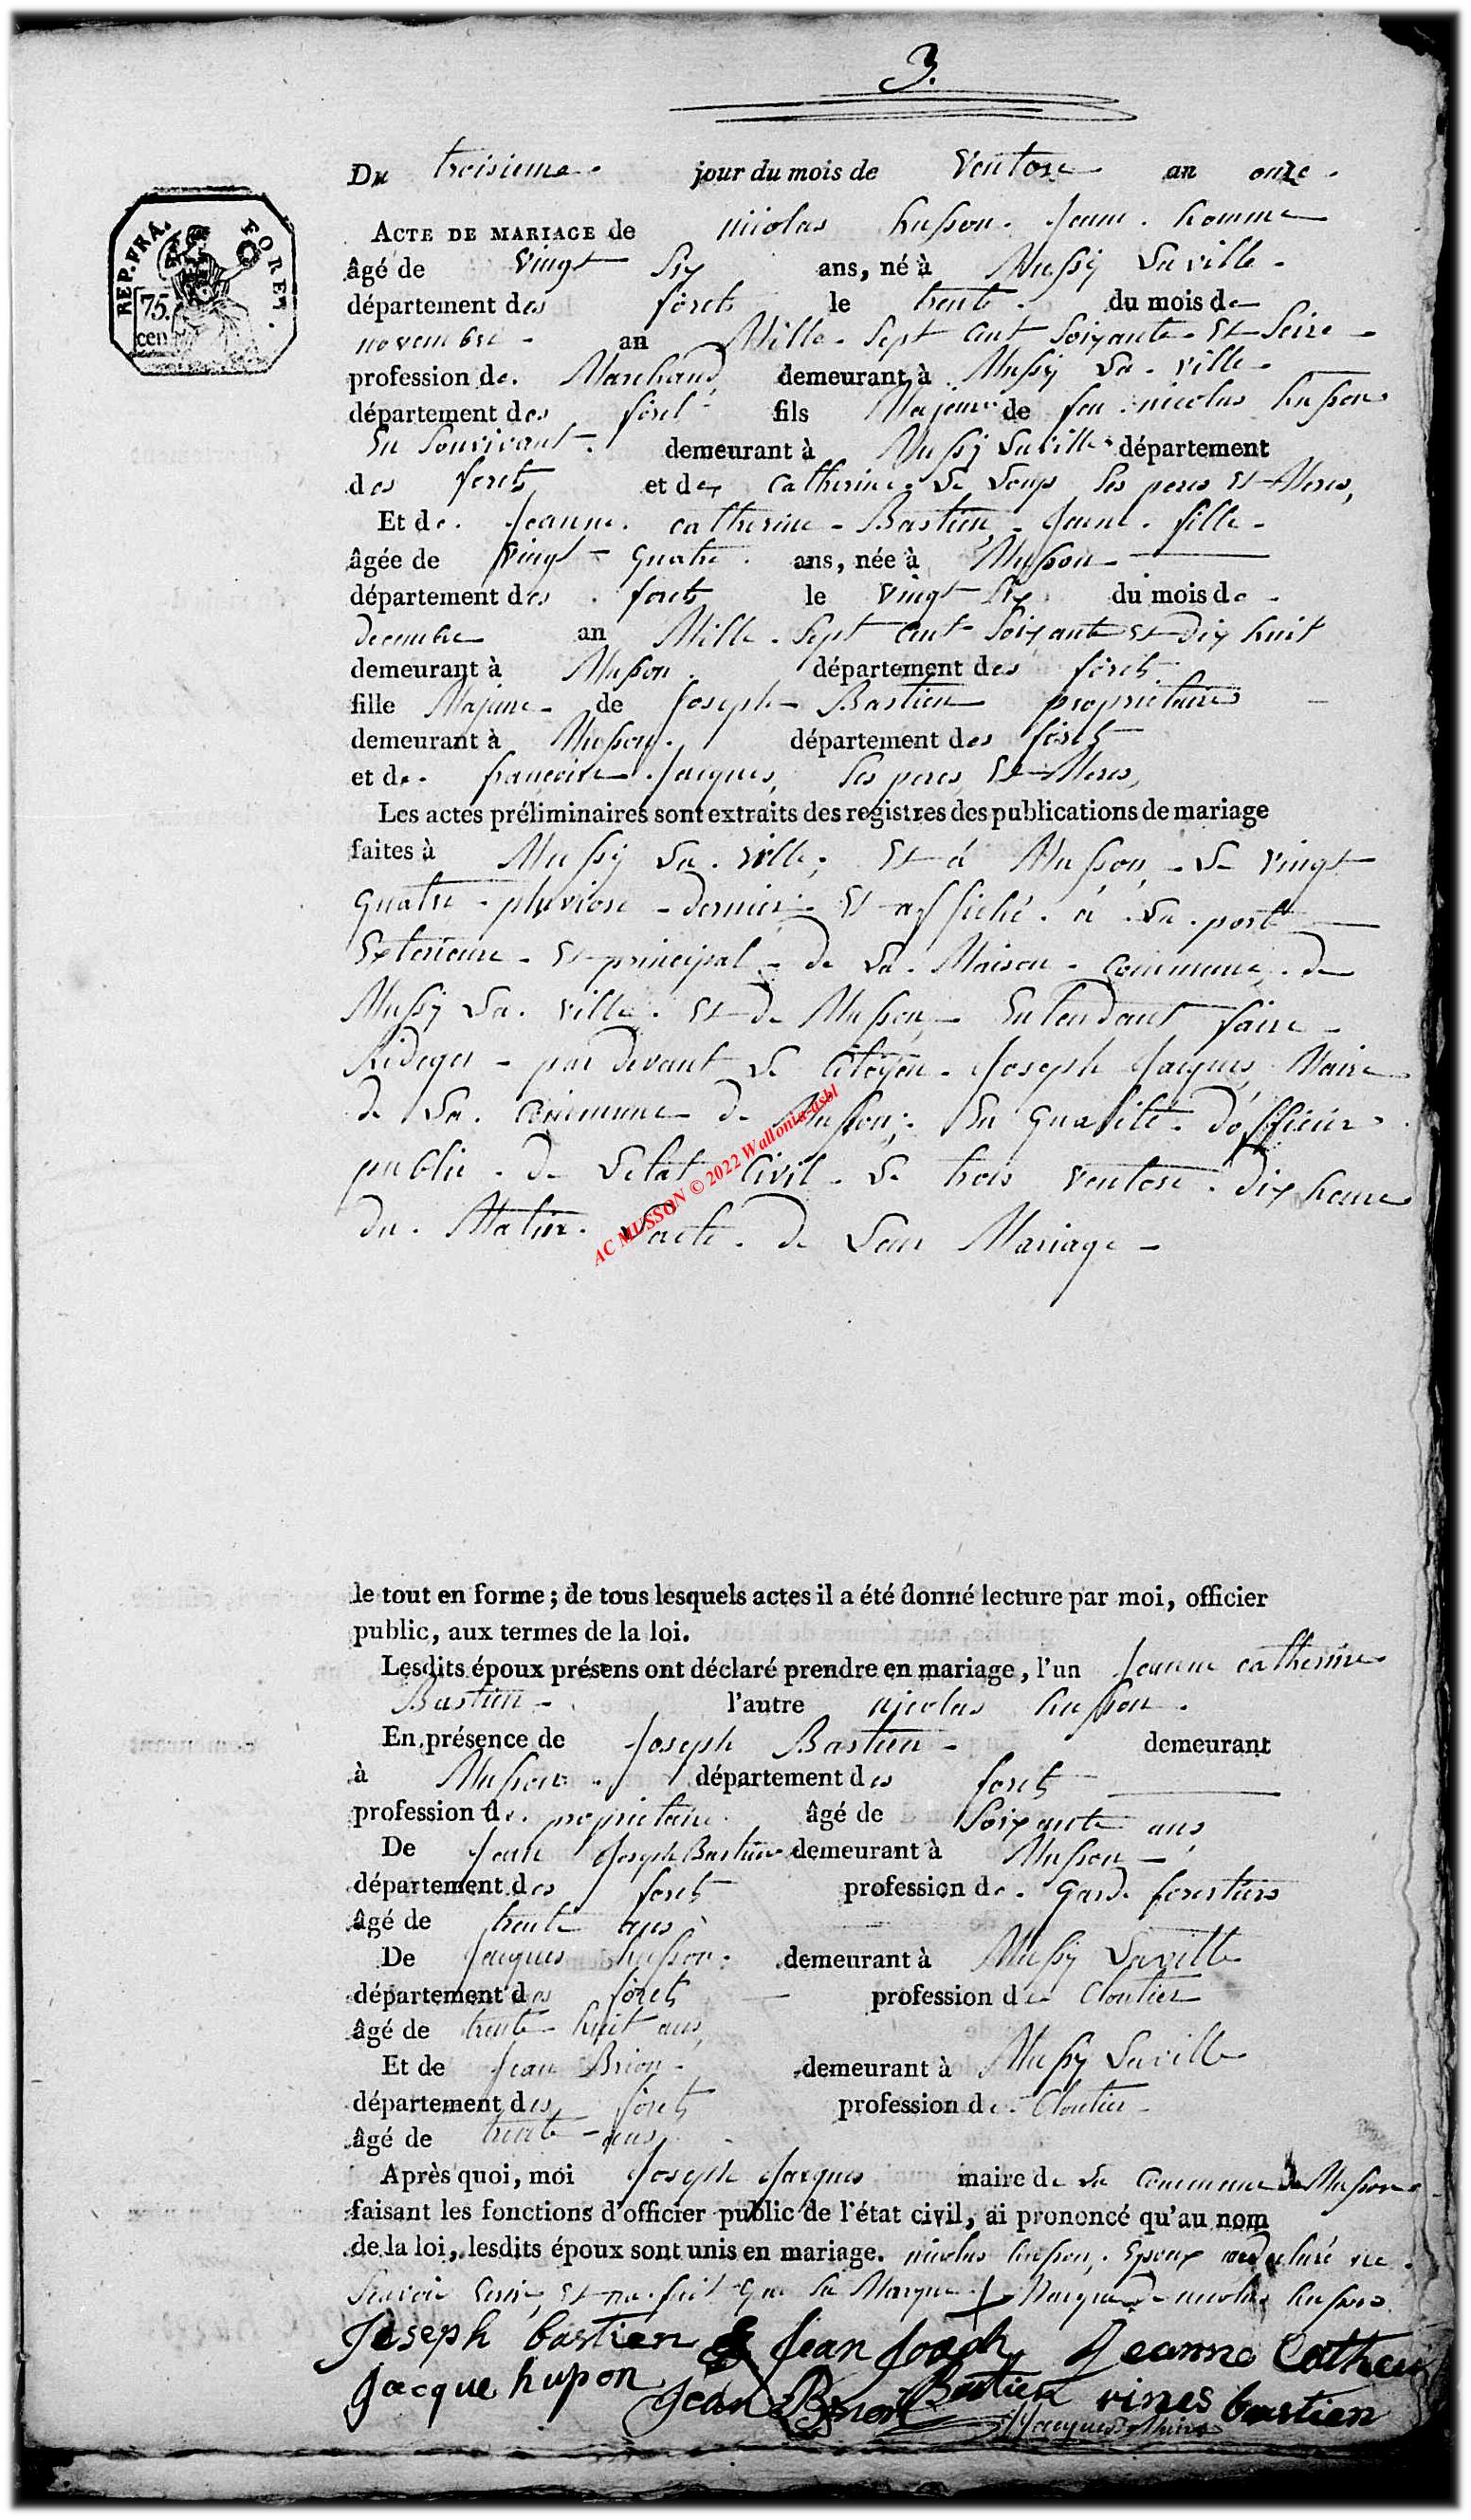 3.
Du troisieme jour du mois de Ventose an onze
REP. FRA. FORET.
75.
cen.
ACTE DE MARIAGE de nicolas husson jeune homme
âgé de vingt six ans, né à Mussy Laville
département des forets le trente du mois de
novembre an Mille Sept Cent Soixante et Seize
profession de Marchand demeurant à Mussy La ville
département des foret fils Majeur de feu nicolas husson
En Sonvivant demeurant à Mussy Laville département
des forets et de catherine Le Loup Ses peres et Meres,
Et de Jeanne catherine Bastien jeune fille
âgée de vingt quatre ans, née à Musson
département des forets le vingt Six du mois de
decembre an Mille Sept Cent Soixante et dix huit
demeurant à Musson département des forets
fille Majeure de Joseph Bastien proprietaire
demeurant à Musson département des forets
et de francoise Jacques, Ses peres Et Meres,
Les actes préliminaires sont extraits des registres des publications de mariage
faites à Mussy La ville, Et à Musson, Le vingt
quatre pluviose dernier Et affiché à La port
Exterieure Et principal de La Maison commune de
Mussy La ville Et de Musson, Entendant faire
Rediger par devant Le Citoyen Joseph Jacques Maire
de La Commune de Musson, En qualité d'officier
public de Letat Civil Le trois ventose dix heure
du Matin Lacte de Leur Mariage
AC MUSSON © 2022 Wallonia-asbl
le tout en forme ; de tous lesquels actes il a été donné lecture par moi, officier
public, aux termes de la loi.
Lesdits époux présens ont déclaré prendre en mariage, l'un Jeanne catherine
Bastien l'autre nicolas husson
En présence de Joseph Bastien demeurant
à Musson département des forets
profession de proprietaire âgé de Soixante ans
De Jean Joseph Bastien demeurant à Musson
département des forets profession de Gard forestiers
âgé de trente ans
De Jacques husson demeurant à Mussy Laville
département des forets profession de Cloutier
âgé de trente huit ans,
Et de Jean Brion demeurant à Mussy Laville
département des forets profession de Cloutier
âgé de trente ans
Après quoi, moi Joseph Jacques maire de La Commune de Musson
faisant les fonctions d'officier public de l'état civil, ai prononcé qu'au nom
de la loi, lesdits époux sont unis en mariage. nicolas husson Epoux declaré ne
Savoir Et ne fait que Sa Marque + Marque de nicolas husson
Joseph bastien Jean Joseph Jeanne Cathe
Jacque hupon Jean Bastien rines bastien
Jacques Maire